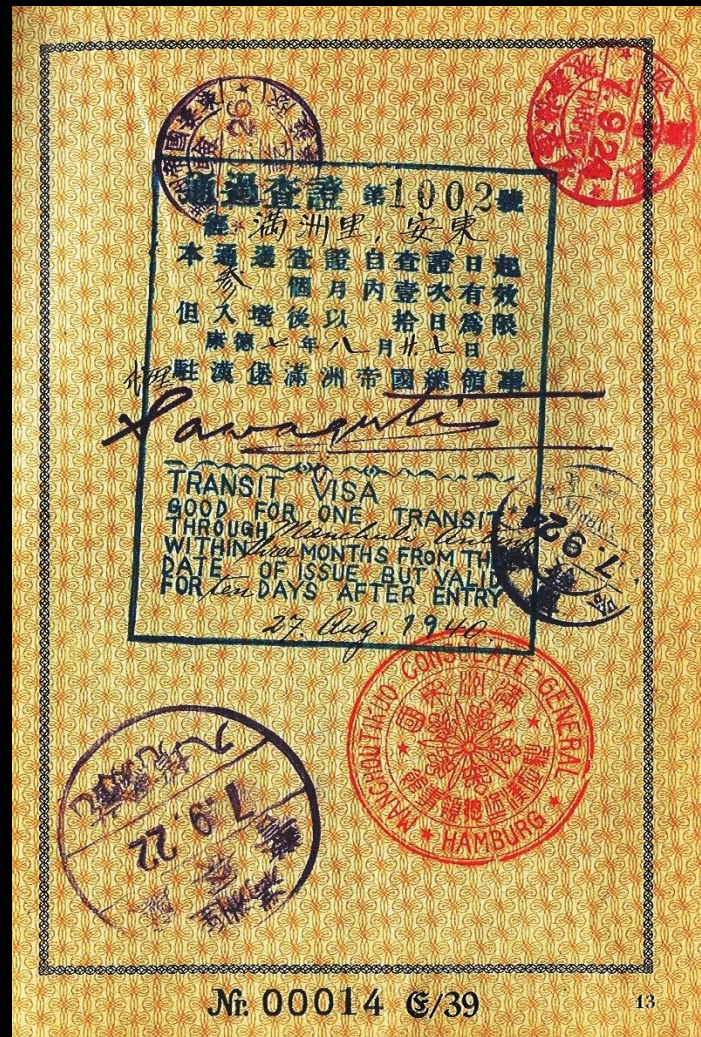 7.9.24
通過查證 第1002號
經 満洲里, 安東
本通過查證自查證日起
參個月內壹次有效
但入境後以拾日爲限
康德七年八月廿七日
代理 駐漢堡滿洲帝國總領事
Sawaguti
TRANSIT VISA
GOOD FOR ONE TRANSIT
THROUGH Manchuli Antung
WITHIN three MONTHS FROM THE
DATE OF ISSUE BUT VALID
FOR ten DAYS AFTER ENTRY
27. Aug. 1940.
7.9.24
MANCHOUTIKUO CONSULATE-GENERAL
HAMBURG
7.9.22
Nr. 00014 E/39
13